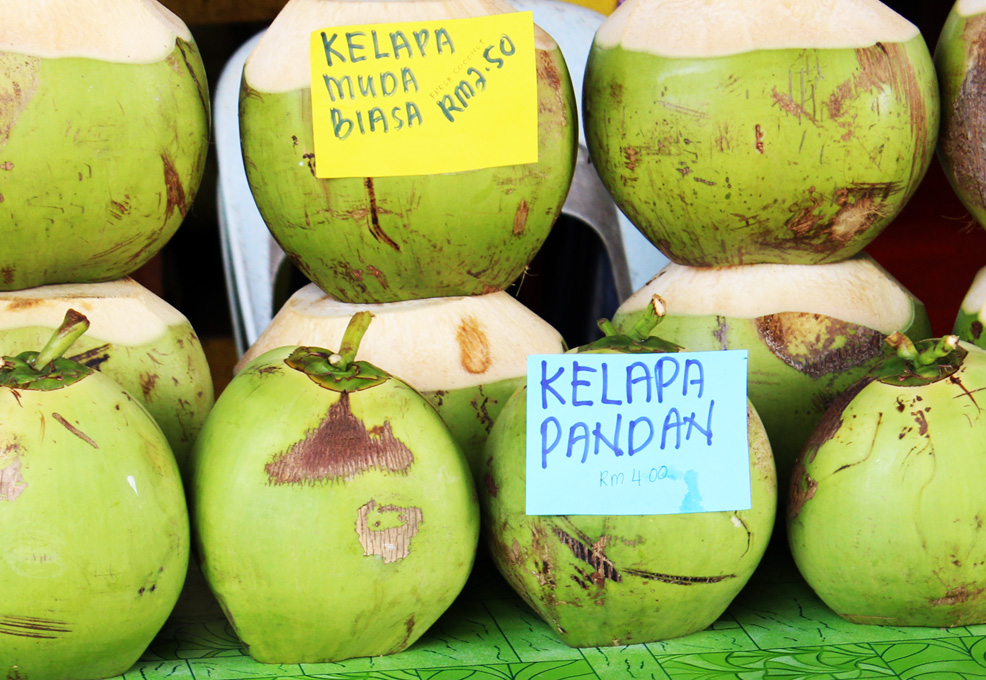 KELAPA
MUDA
BIASA RM2.50
KELAPA
PANDAN
Rm 4.00